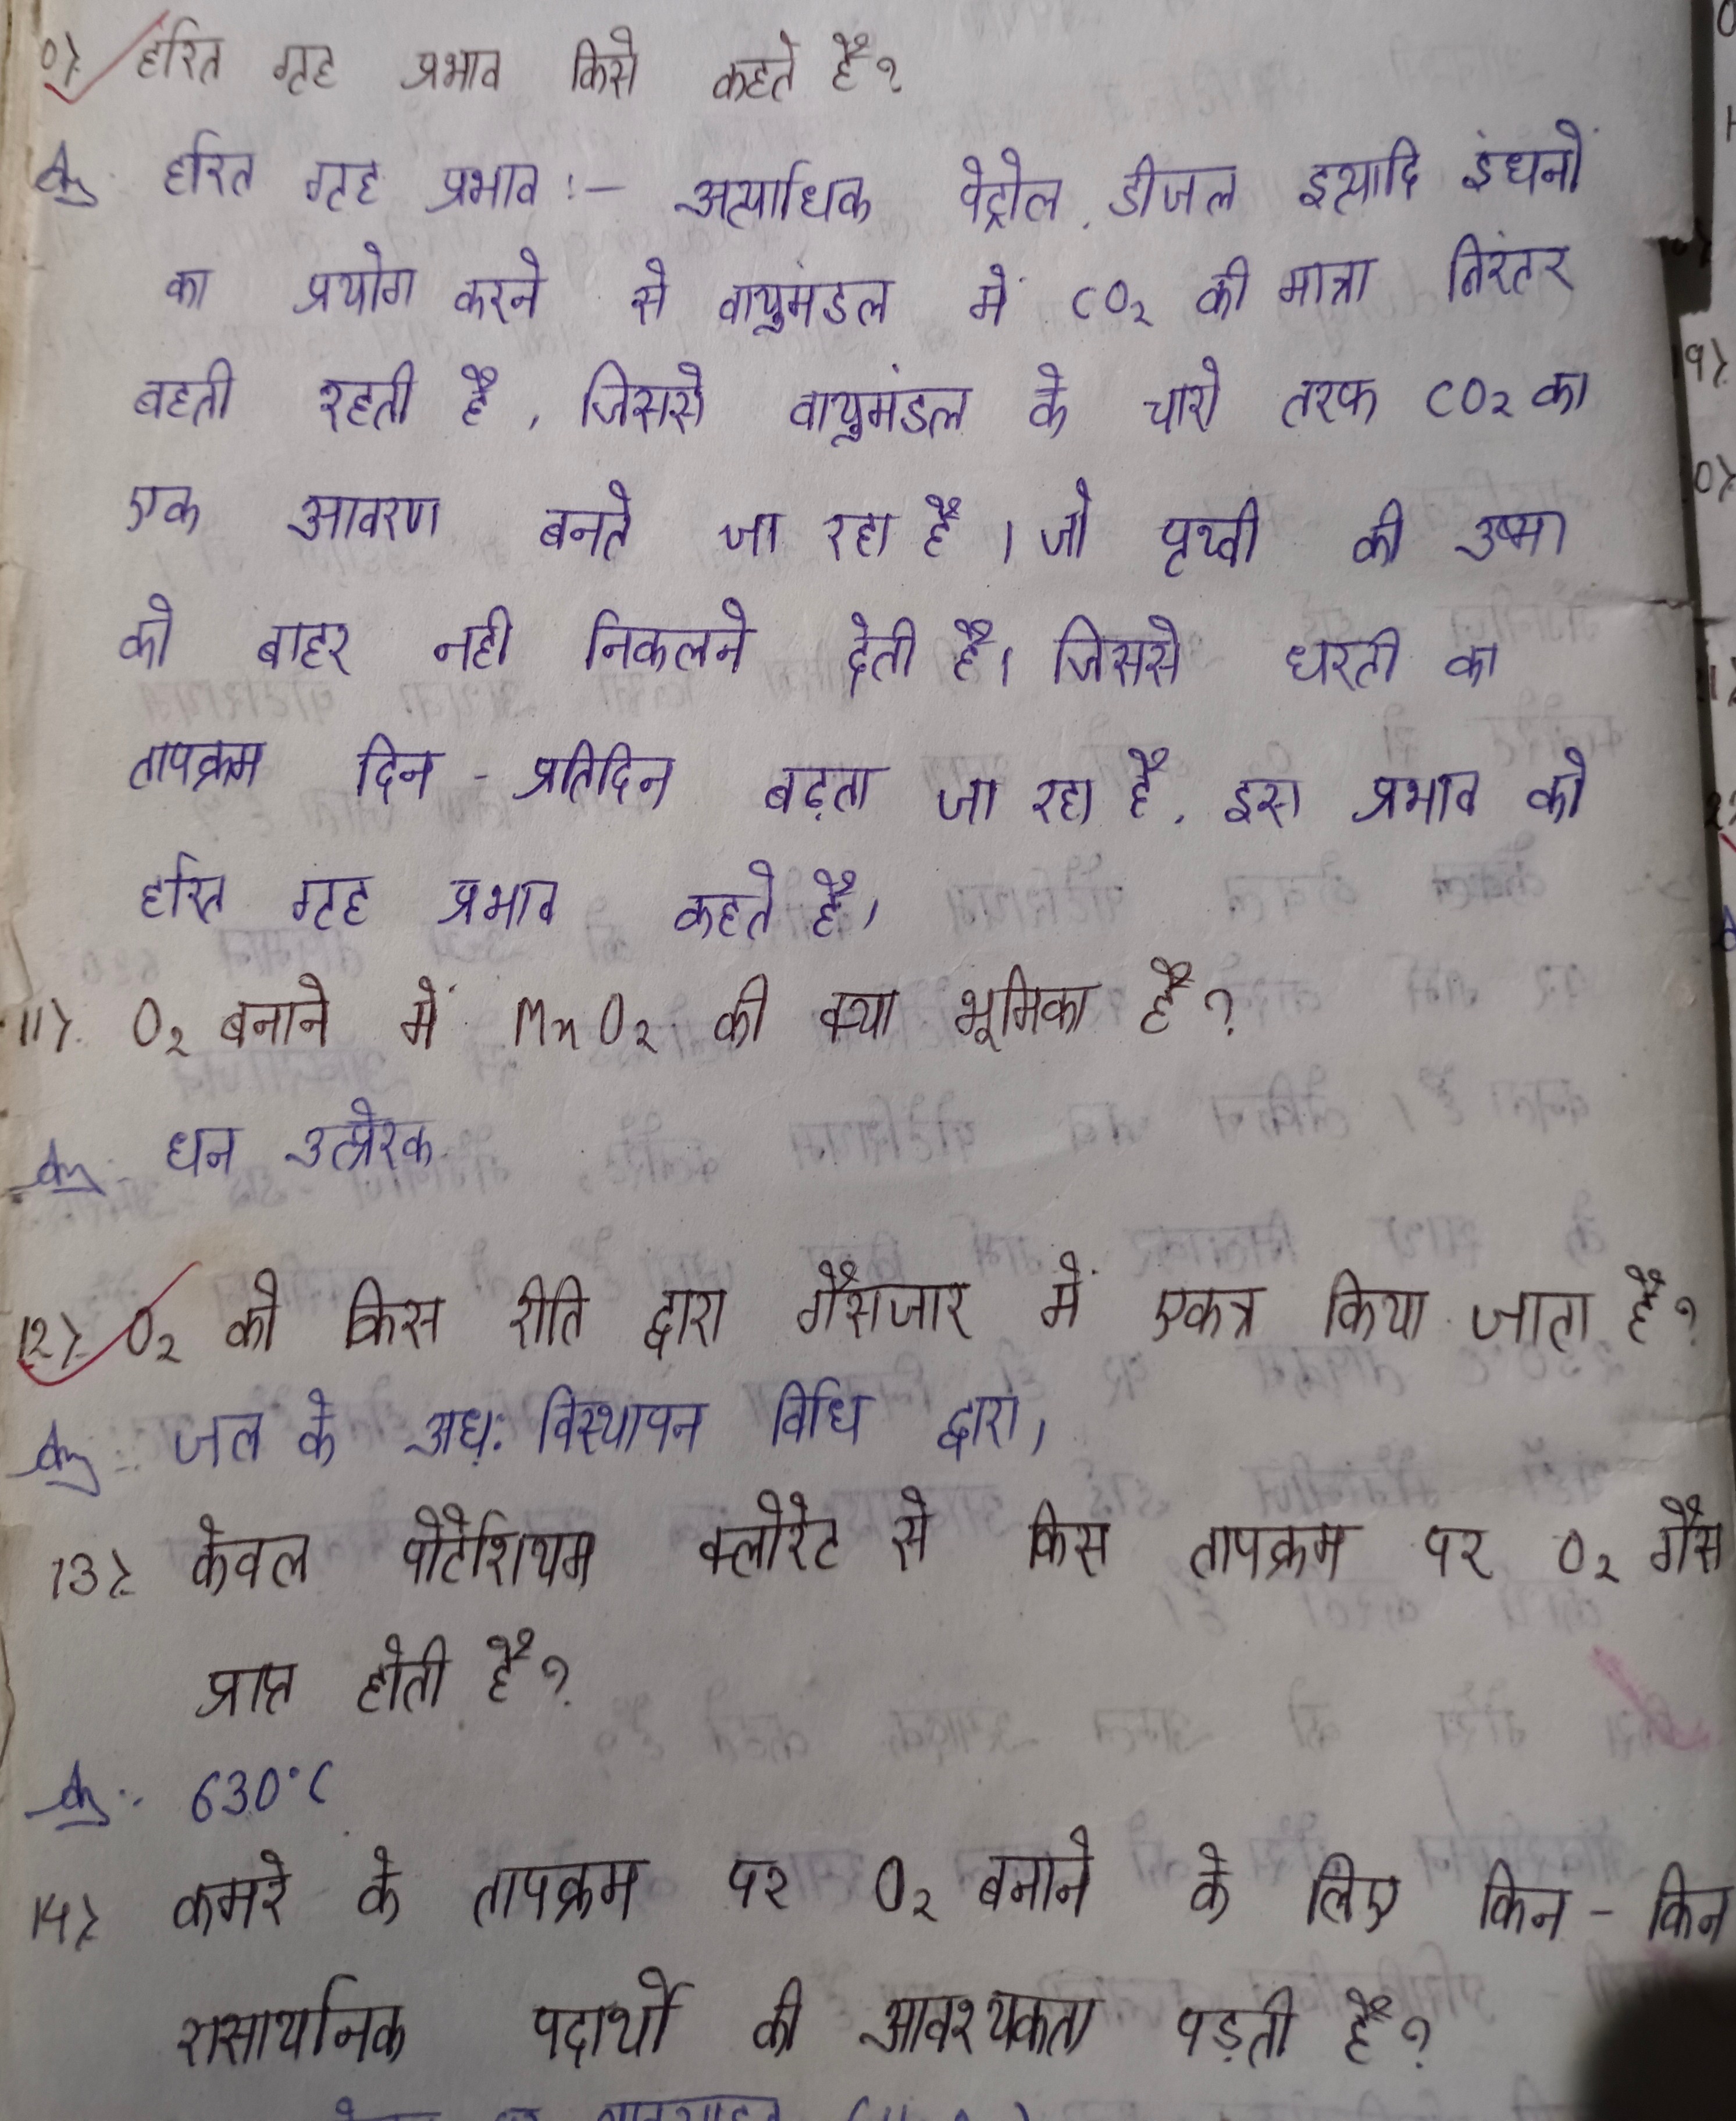 0) हरित गृह प्रभाव किसे कहते हैं?
Ans हरित गृह प्रभाव :- अत्याधिक पेट्रोल, डीजल इत्यादि इंधनों
का प्रयोग करने से वायुमंडल में CO₂ की मात्रा निरंतर
बहती रहती है, जिससे वायुमंडल के चारो तरफ CO₂ का
एक आवरण बनते जा रहा है। जो पृथ्वी की उष्मा
को बाहर नही निकलने देती है। जिससे धरती का
तापक्रम दिन - प्रतिदिन बढ़ता जा रहा है, इस प्रभाव को
हरित गृह प्रभाव कहते है।
11). O₂ बनाने में MnO₂ की क्या भूमिका है?
Ans: धन उत्प्रेरक
12) O₂ को किस रीति द्वारा गैसजार में एकत्र किया जाता है?
Ans: जल के अध: विस्थापन विधि द्वारा।
13) केवल पोटैशियम क्लोरेट से किस तापक्रम पर O₂ गैस
प्राप्त होती है?
Ans: 630°C
14) कमरे के तापक्रम पर O₂ बनाने के लिए किन - किन
रासायनिक पदार्थो की आवश्यकता पड़ती है?